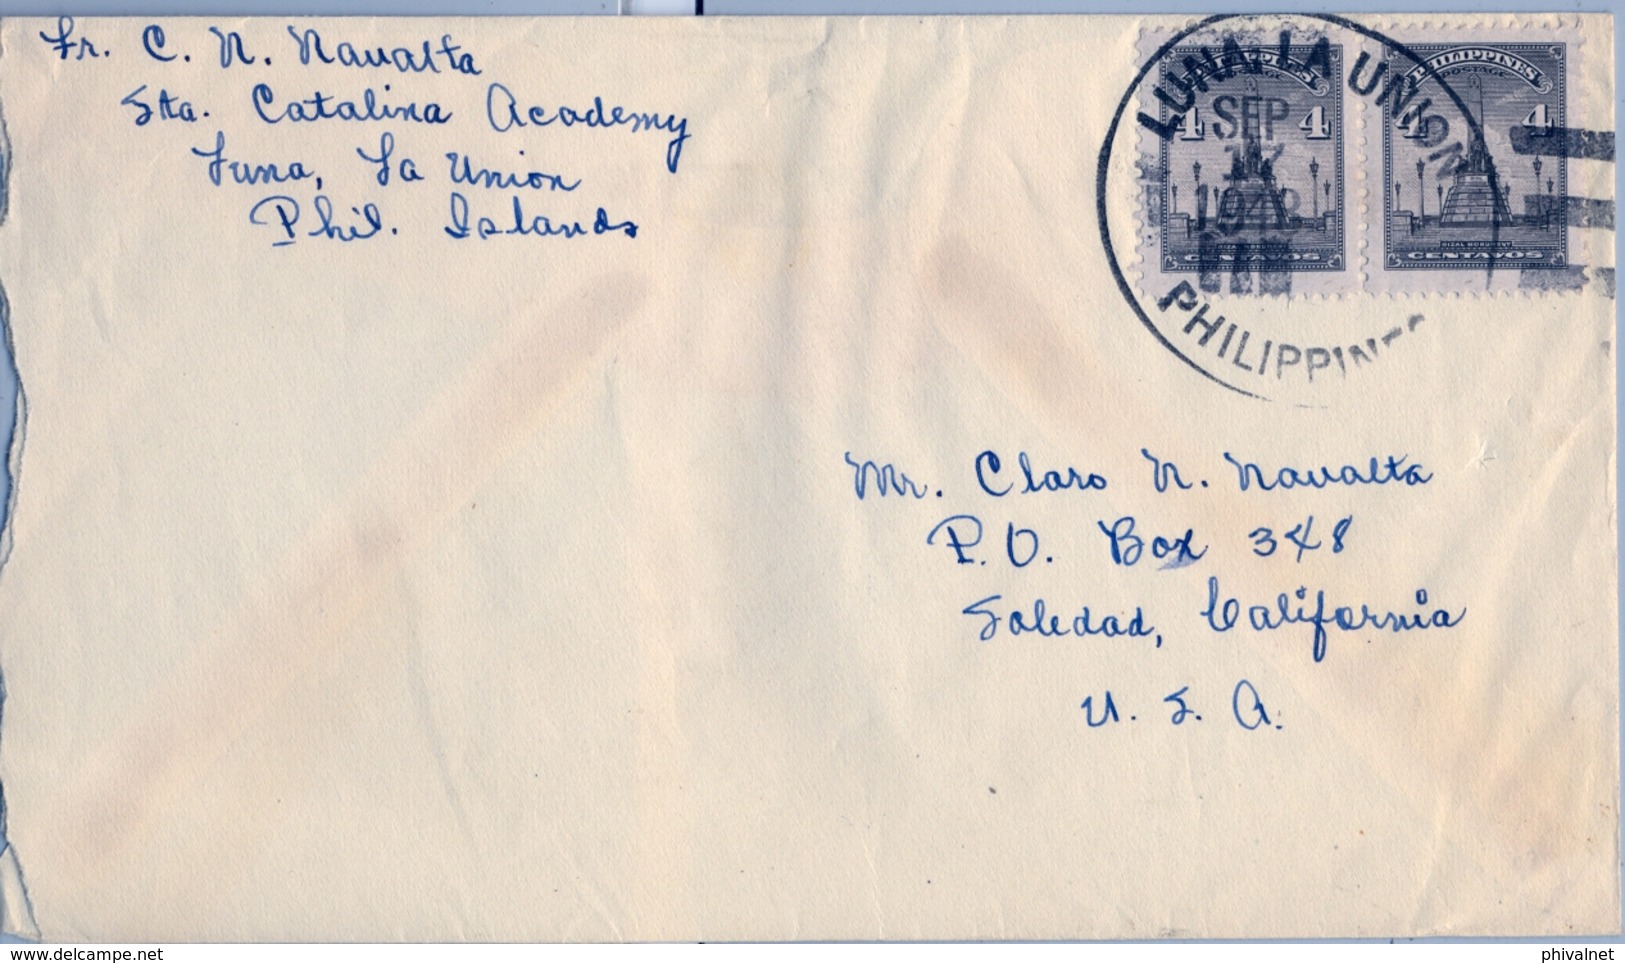 Fr. C. N. Navalta
Sta. Catalina Academy
Luna, La Union
Phil. Islands
LUNA, LA UNION
SEP
17
1948
PHILIPPINES
PHILIPPINES
POSTAGE
4 4
RIZAL MONUMENT
CENTAVOS
PHILIPPINES
POSTAGE
4 4
RIZAL MONUMENT
CENTAVOS
Mr. Claro N. Navalta
P.O. Box 348
Soledad, California
U. S. A.
delcampe.net
phivalnet